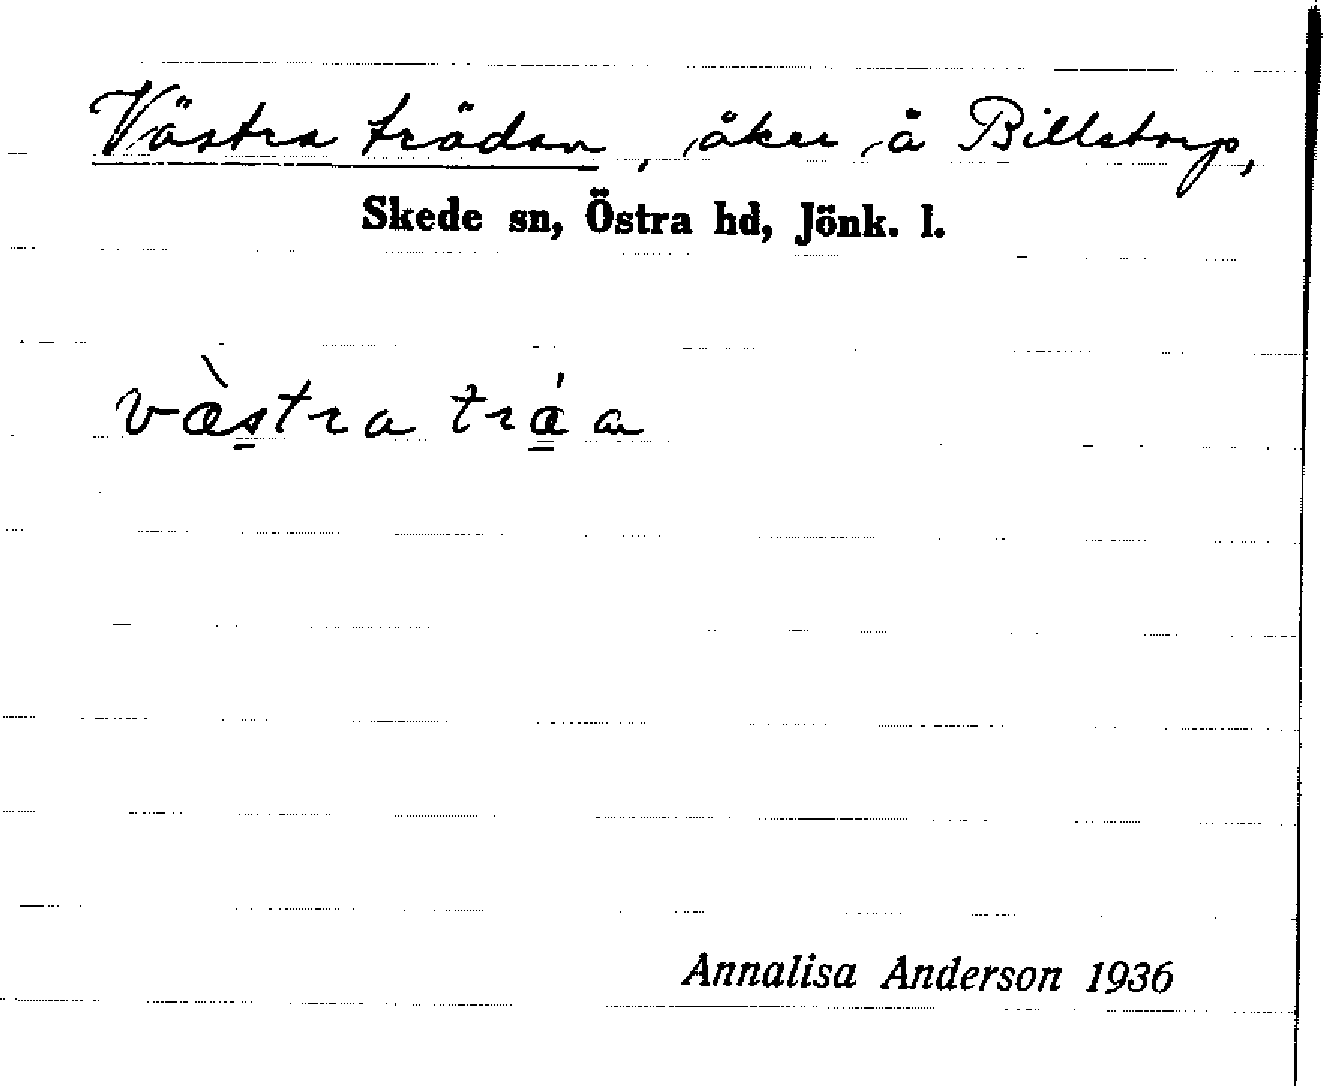 Västra trädan, åker å Billstorp,
Skede sn, Östra hd, Jönk. l.
væ̀stra trǽa
Annalisa Anderson 1936